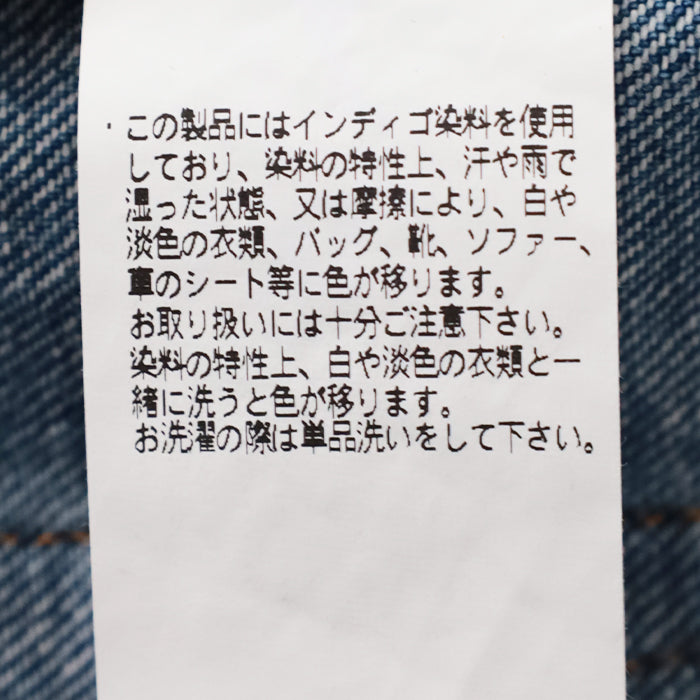 ・この製品にはインディゴ染料を使用
しており、染料の特性上、汗や雨で
湿った状態、又は摩擦により、白や
淡色の衣類、バッグ、靴、ソファー、
車のシート等に色が移ります。
お取り扱いには十分ご注意下さい。
染料の特性上、白や淡色の衣類と一
緒に洗うと色が移ります。
お洗濯の際は単品洗いをして下さい。